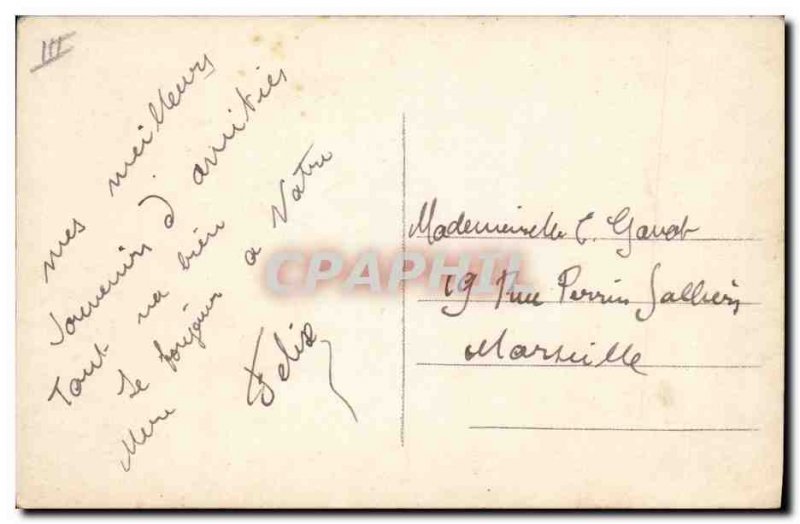 III
mes meilleurs
souvenirs d'amitiés
Tout va bien
Le bonjour a Votre
Mere Felix
Mademoiselle C. Gavot
19 Rue Perrin
Marseille
CPAPHIL